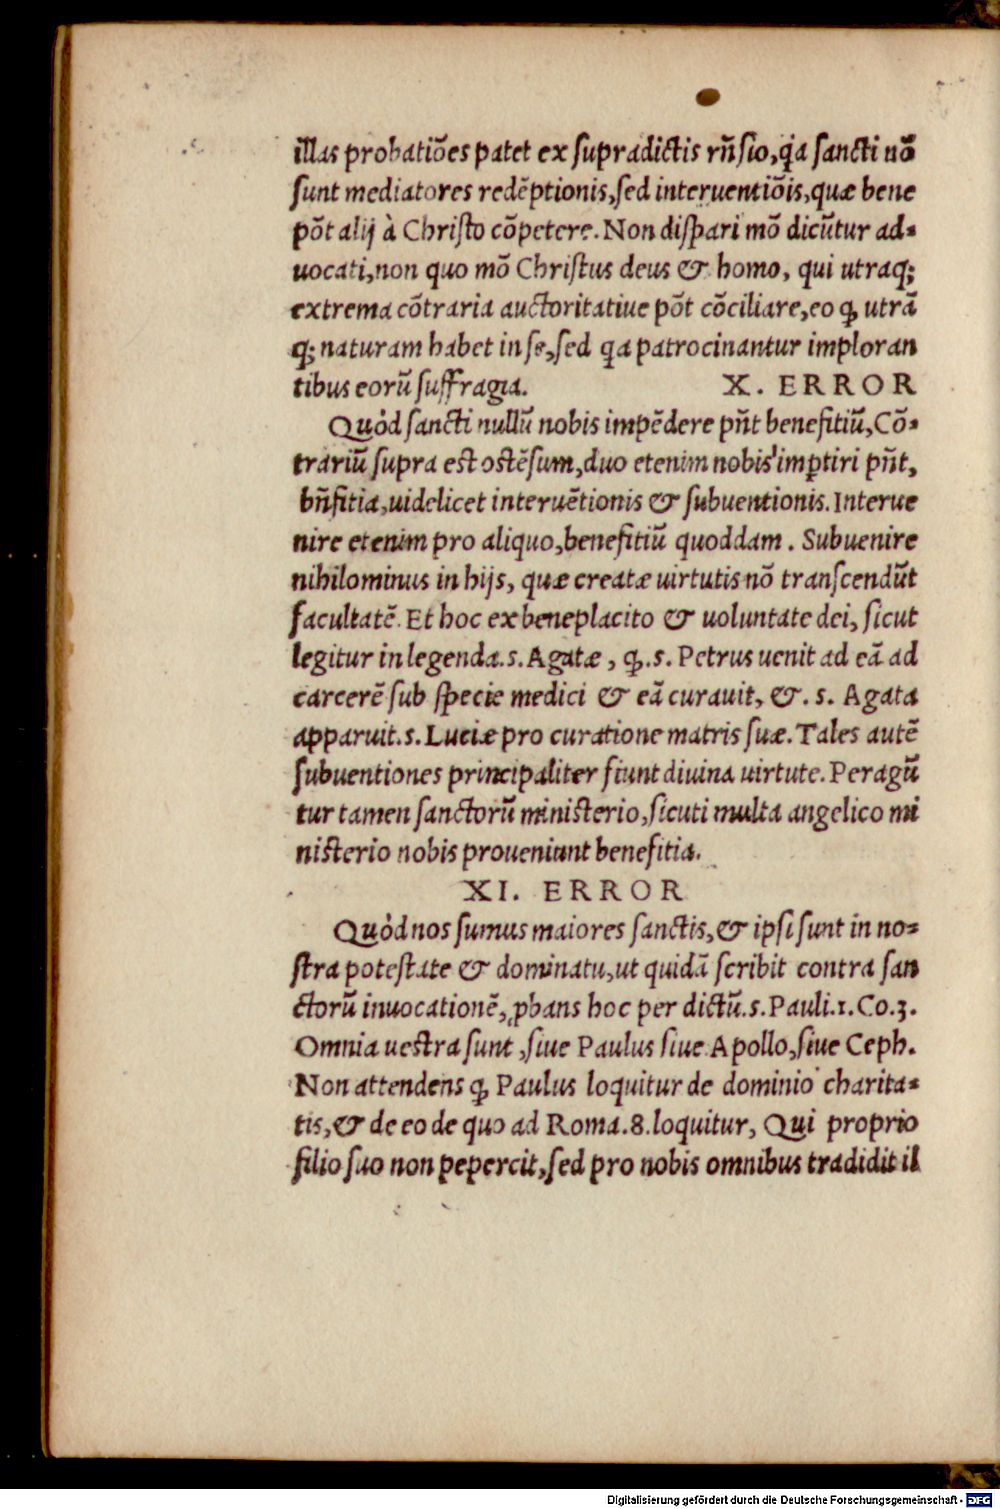 illas probatiōes patet ex supradictis rn̄sio, q̇a sancti nō
sunt mediatores redēptionis, sed interuentiōis, quæ bene
pōt alij à Christo cōpetere. Non dispari mō dicūtur ad-
uocati, non quo mō Christus deus & homo, qui utraq;
extrema cōtraria auctoritatiue pōt cōciliare, eo ꝙ utrā
q; naturam habet in se, sed qa patrocinantur imploran
tibus eorū suffragia. X. ERROR
Quòd sancti nullū nobis impēdere pn̄t benefitiū, Cō-
trariū supra est ostēsum, duo etenim nobis imꝑtiri pn̄t,
bn̄fitia, uidelicet interuētionis & subuentionis. Interue
nire etenim pro aliquo, benefitiū quoddam. Subuenire
nihilominus in hijs, quæ creatæ uirtutis nō transcendūt
facultatē. Et hoc ex beneplacito & uoluntate dei, sicut
legitur in legenda .s. Agatæ, ꝙ .s. Petrus uenit ad eā ad
carcerē sub specie medici & eā curauit, & .s. Agata
apparuit .s. Luciæ pro curatione matris suæ. Tales autē
subuentiones principaliter fiunt diuina uirtute. Peragū
tur tamen sanctorū ministerio, sicuti multa angelico mi
nisterio nobis proueniunt benefitia.
XI. ERROR
Quòd nos sumus maiores sanctis, & ipsi sunt in no-
stra potestate & dominatu, ut quidā scribit contra san
ctorū inuocationē, ꝓbans hoc per dictū .s. Pauli. 1. Co. 3.
Omnia uestra sunt, siue Paulus siue Apollo, siue Ceph.
Non attendens ꝙ Paulus loquitur de dominio charita-
tis, & de eo de quo ad Roma. 8. loquitur, Qui proprio
filio suo non pepercit, sed pro nobis omnibus tradidit il
Digitalisierung gefördert durch die Deutsche Forschungsgemeinschaft - DFG